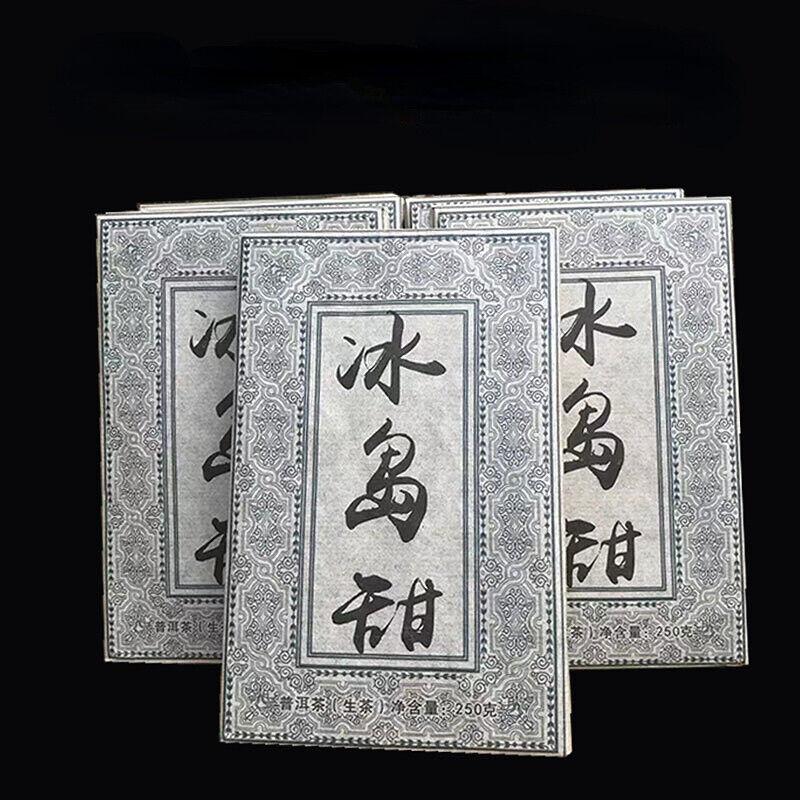 冰
島
甜
普洱茶（生茶）净含量：250克
冰
島
甜
普洱茶（生
冰
島
甜
茶）净含量：250克